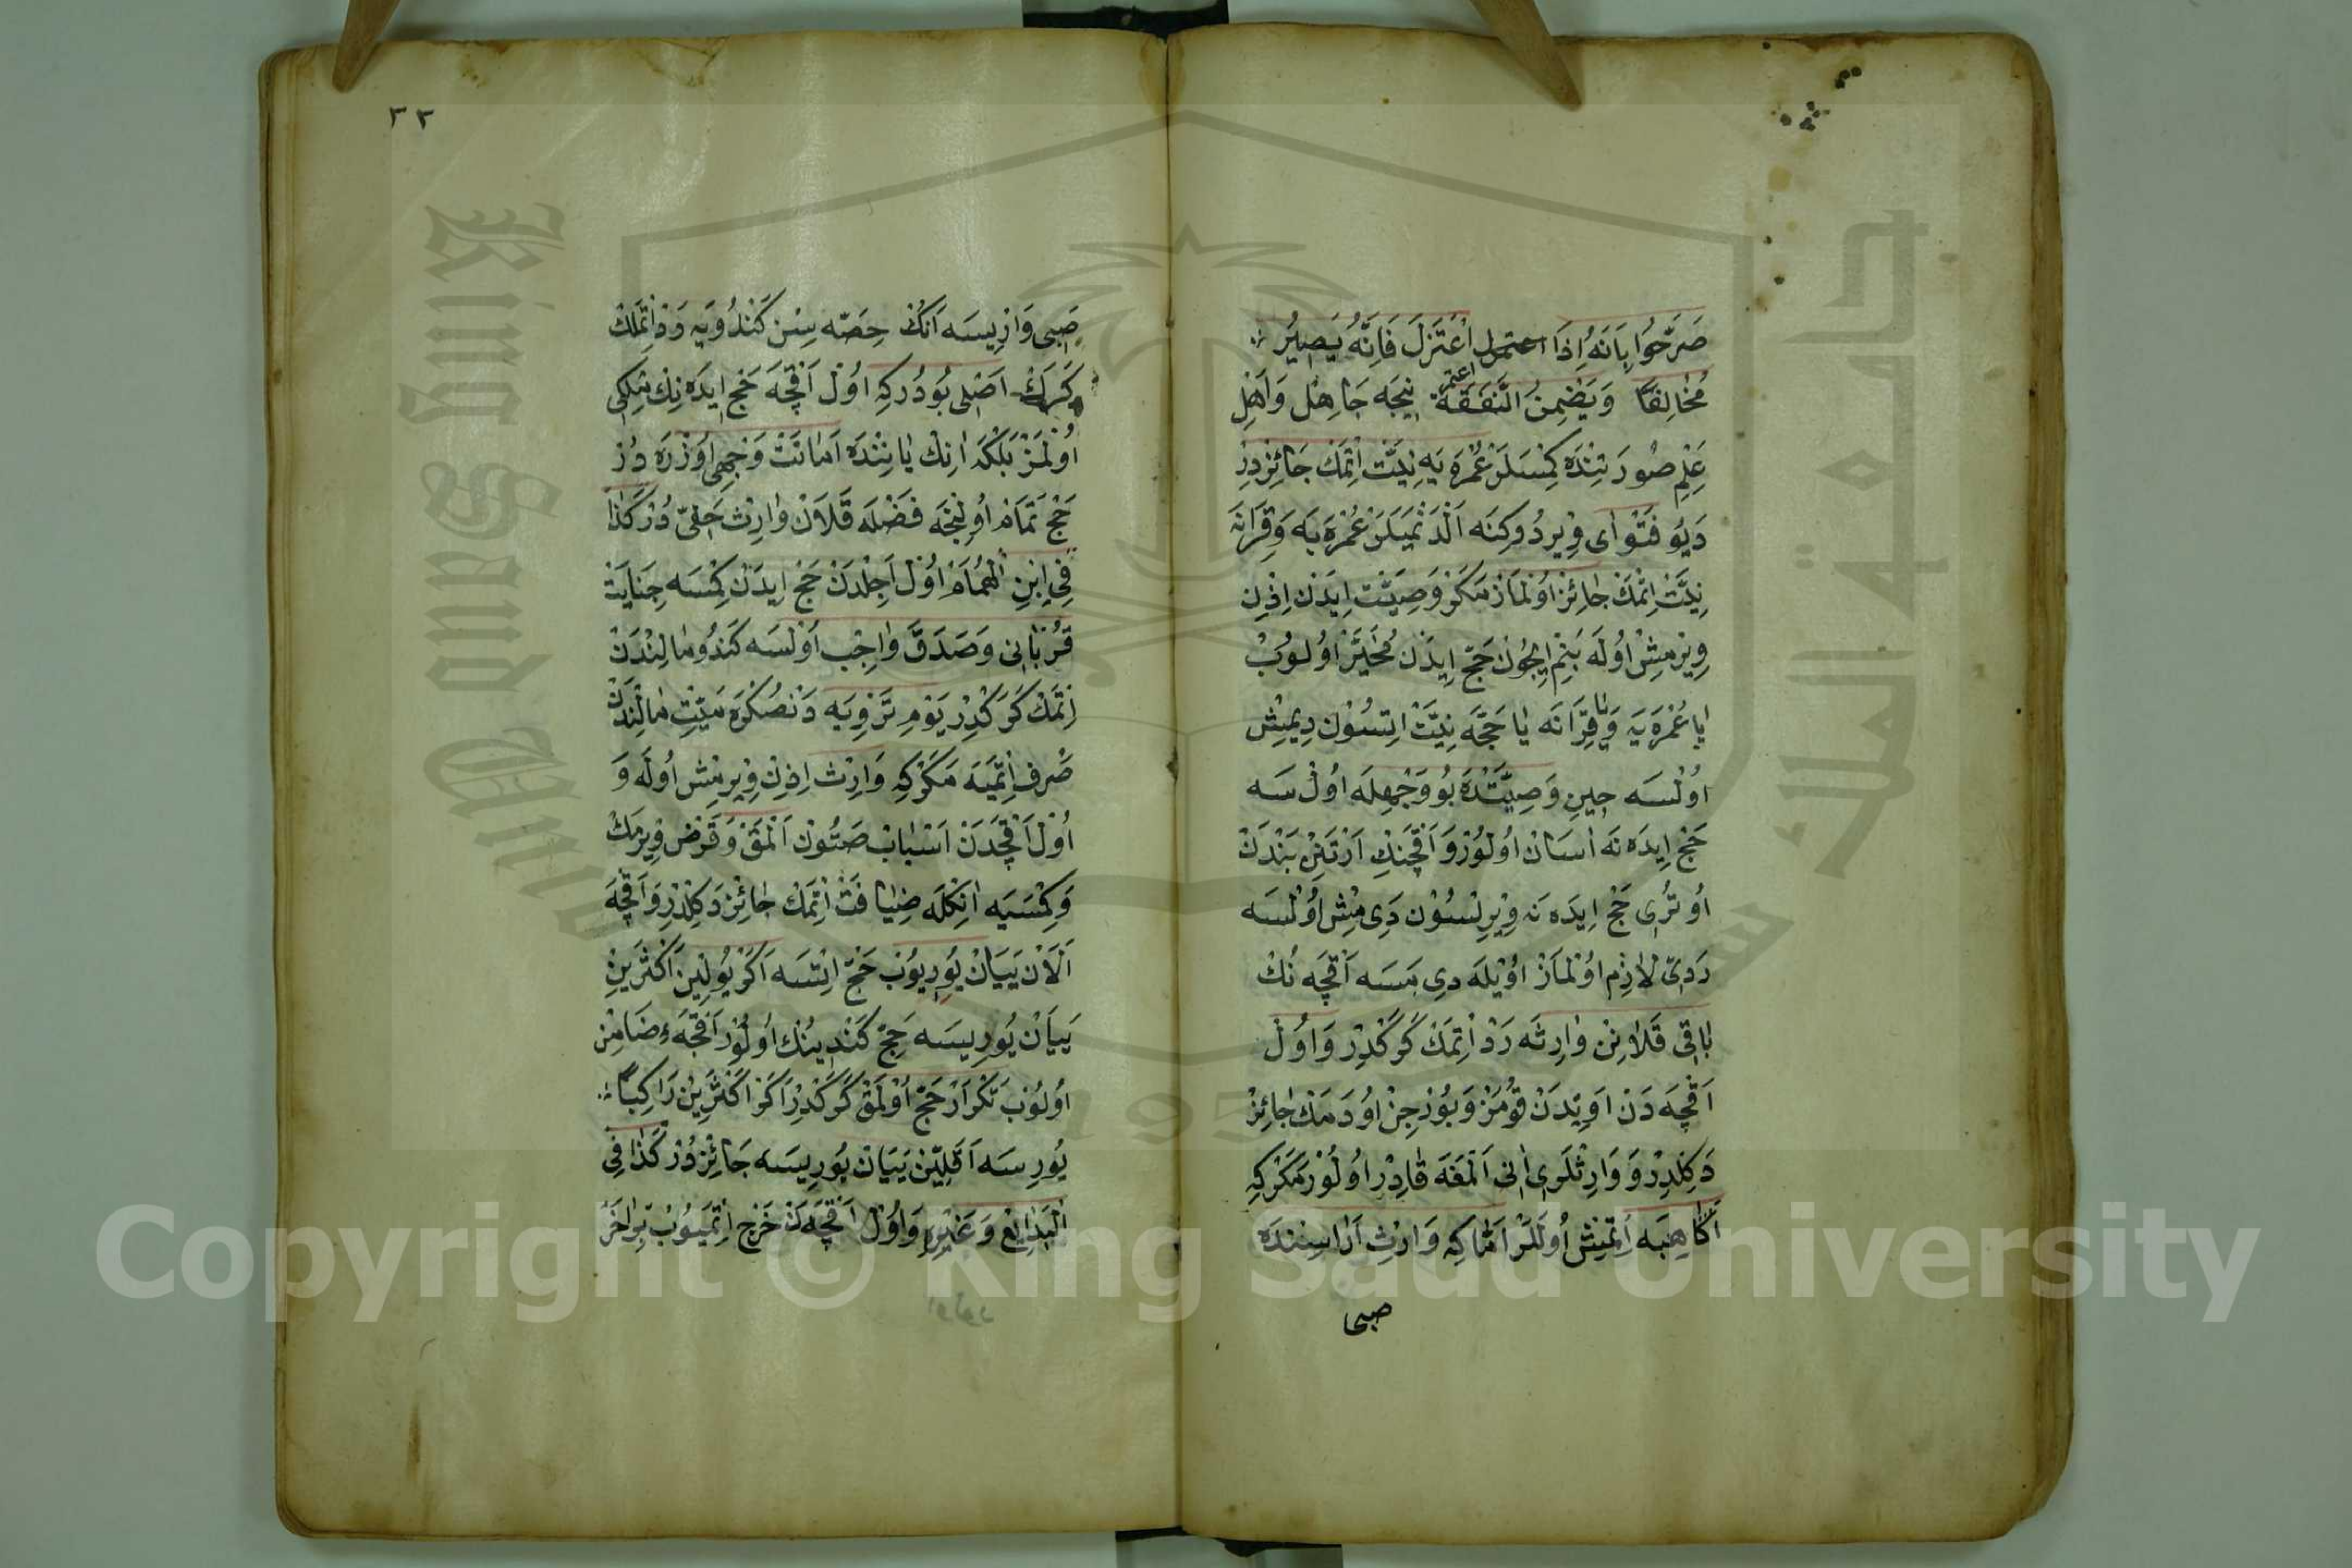 صَرَّحُوا بِاَنَهُ اِذَا اعتمل اعْتَزَلَ فَاِنَّهُ يَصِيرُ
مُخَالِفًا وَيَضْمِنُ النَّفَقَةَ نِيجَه جَاهِل وَاَهْلِ
عِلِم صُورَتِنْدَه كِمْسَلَرْ عُمْرَه يَه نِيَّت اِتْمَك جَائِزدِرْ
دَيُو فَتْوٰاى وِيردُوركِنَه اَلْدَنْمَيَلَرْ عُمْرَه يَه وَقِرَانَه
نِيَّتْ اِتْمَكْ جَائِزْ اوُلْمَازْ مَكَرْ وَصِيَّت اِيدَن اِذِن
وِيرْمِشْ اوُلَه بَنِم اِيچُونْ حَجّ اِيدَن مُخَيَّرْ اوُلوُبْ
يا عُمْرَه يَه وَيٰا قِرَانَه يٰا حَجَّه نِيَّتْ اِتسُوُن دِيمِيْش
اُوْلْسَه حِينِ وَصِيَّتْدَه بُو وَجْهِلَه اوُلْ سَه
حَجْ اِيدَه نَه اٰسَانْ اوُلوُرْ وَ اَقْچَنِكْ اَرْتَنِى بَنْدَنْ
اُوتُرِى حَجْ اِيدَه نَه وِيْرِلْسُوُن دَى مِيْش اوُلْسَه
رَدِىّ لاٰزِم اوُلْمَازْ اوُيْلَه دى مَسَه اَقْچَه نُكْ
بٰاقِى قَلاٰنِنْ وٰارِثَه رَدْ اِتِمَكْ كَرَكْدِرْ وَ اوُلْ
اَقْچَه دَنْ اَوِيْدَنْ قوُمَزْ وَ بوُرْجِنْ اوُدَمَكْ جٰائِزْ
دَكِلْدِرْ وَ وَارِثْلَرِى اٰنِى اَلْمَغَه قٰادِرْ اوُلُورْ مَكَرْكِه
اَكَا هِبَه اِتْمِيْش اُولَلَرْ اَمَّا كِه وَارِثْ اَرَاسِنْدَه
صبى
٣٣
صَبِى وَارِيسَه اَنُكْ حِصَّه سِنْ كَنْدُويَه رَدْ اِتْمَكْ
كَرَكْ اَصْلى بُودُركِه اوُلْ اَقْچَه حَجْ اِيدَه نِك مِلْكِى
اُولْمَزْ بَلْكَه اٰنِكْ يٰانِنْدَه اَمَانَتْ وَجْهِى اوُزْرَه دُرْ
حَجْ تَمَامْ اوُلِيْجَه فَضْلَه قَلاَنْ وٰارِثْ حَقّى دُرْ كَذَا
فِى اِبْنِ الْهُمَامْ اوُلْ اَجِلْدَنْ حَجْ اِيدَنْ كِمْسَه جِنَايَتْ
قُرْبَانِى وَصَدَقَه وٰاجِب اوُلْسَه كَنْدُو مٰالِنْدَنْ
اِتْمَكْ كَرَكْدِرْ يَوْمِ تَرْوِيَه دَنْ صُكْرَه مَيِّتِ مٰالِنْدَنْ
صَرف اِتْمَيَه مَكَرْكِه وَارِثْ اِذِنْ وِيرمِش اُولَه وَ
اُوُلْ اَقْچَدَنْ اَسْبَابْ صَتُونْ اَلْمَقْ وَ قَرْض وِيرمَكْ
وَكِمْسَيَه اٰنِكْلَه ضِيَافَتْ اِتْمَكْ جٰائِزْ دَكِلْدِرْ وَ اَقْچَه
اَلاَنْ يَيَانْ يُورِيُوبْ حَجّ اِتْسَه اَكَرْ يُولِينْ اَكْثَرِينِ
يَيَانْ يُورِيسَه حَجّ كَنْدِينُك اوُلُورْ اَقْچَه ءِ ضَامِنْ
اوُلوُبْ تَكْرَارْ حَجّ اُوْلْمَقْ كَرَكْدِرْ اَكَرْ اَكْثَرِينْ رَاكِبًا
يُورِسَه اَقَلِّينْ يَيَانْ يُورِيسَه جَائِزْ دُرْ كَذَا فِى
الْبَدَايِعْ وَغَيْرِهِ وَاوُلْ اَقْچَه دَنْ خَرْج اِتْمَيُوبْ بِرْ اٰخَرْ
King Saud University
جامعة الملك سعود
1957
Copyright © King Saud University